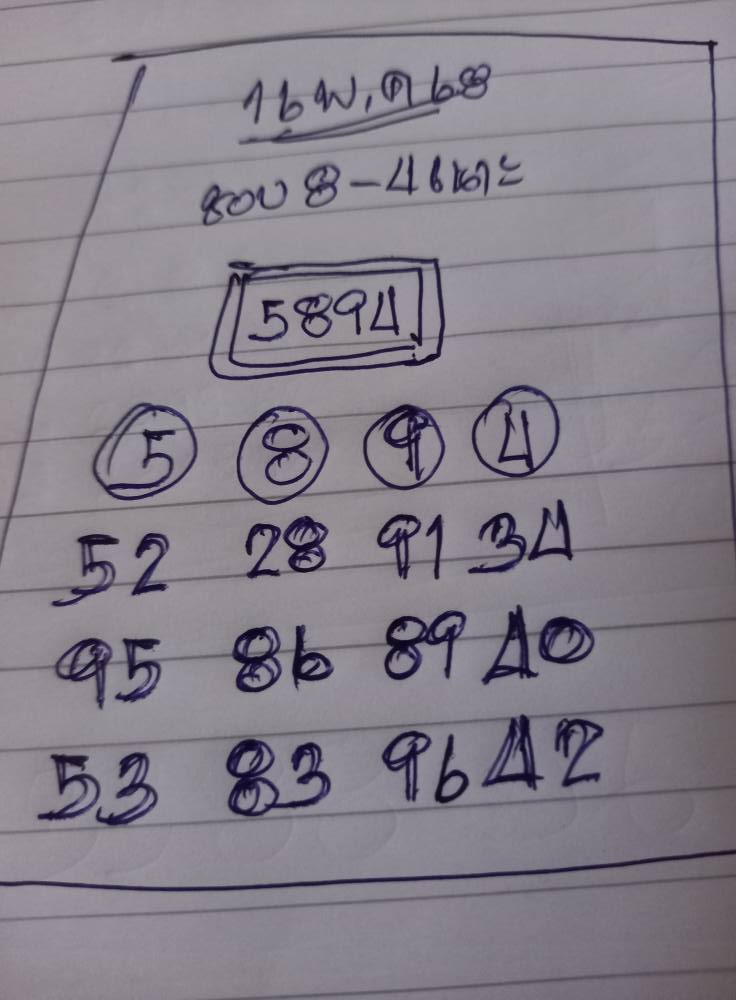 16 พ.ค 68
ชอบ 8-4 เน้าะ
5894
5 8 9 4
52 28 91 34
95 86 89 40
53 83 96 42